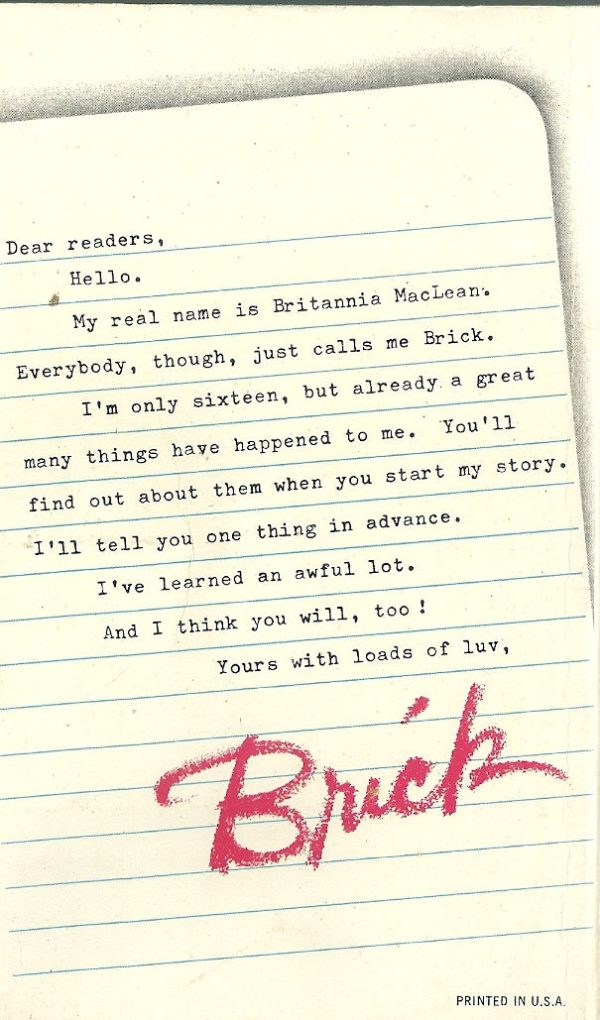 Dear readers,
Hello.
My real name is Britannia MacLean.
Everybody, though, just calls me Brick.
I'm only sixteen, but already a great
many things have happened to me. You'll
find out about them when you start my story.
I'll tell you one thing in advance.
I've learned an awful lot.
And I think you will, too!
Yours with loads of luv,
Brick
PRINTED IN U.S.A.